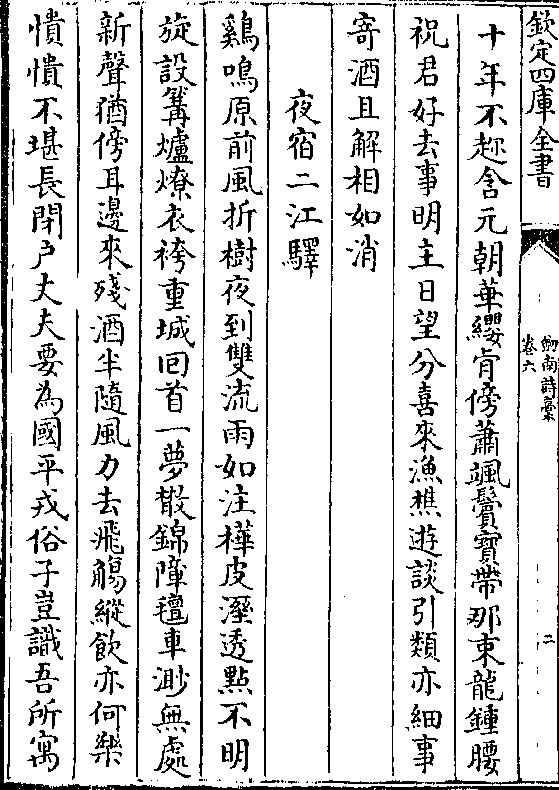 欽定四庫全書
劒南詩稾
卷六
二
十年不趂含元朝華纓肯傍蕭颯鬢寳帶那束龍鍾腰
祝君好去事明主日望分喜來漁樵遊談引類亦細事
寄酒且解相如消
夜宿二江驛
雞鳴原前風折樹夜到雙流雨如注樺皮溼透點不明
旋設篝爐燎衣袴重城回首一夢散錦障氊車渺無處
新聲猶傍耳邊來殘酒半隨風力去飛觴縱飲亦何樂
憒憒不堪長閉户丈夫要為國平戎俗子豈識吾所寓